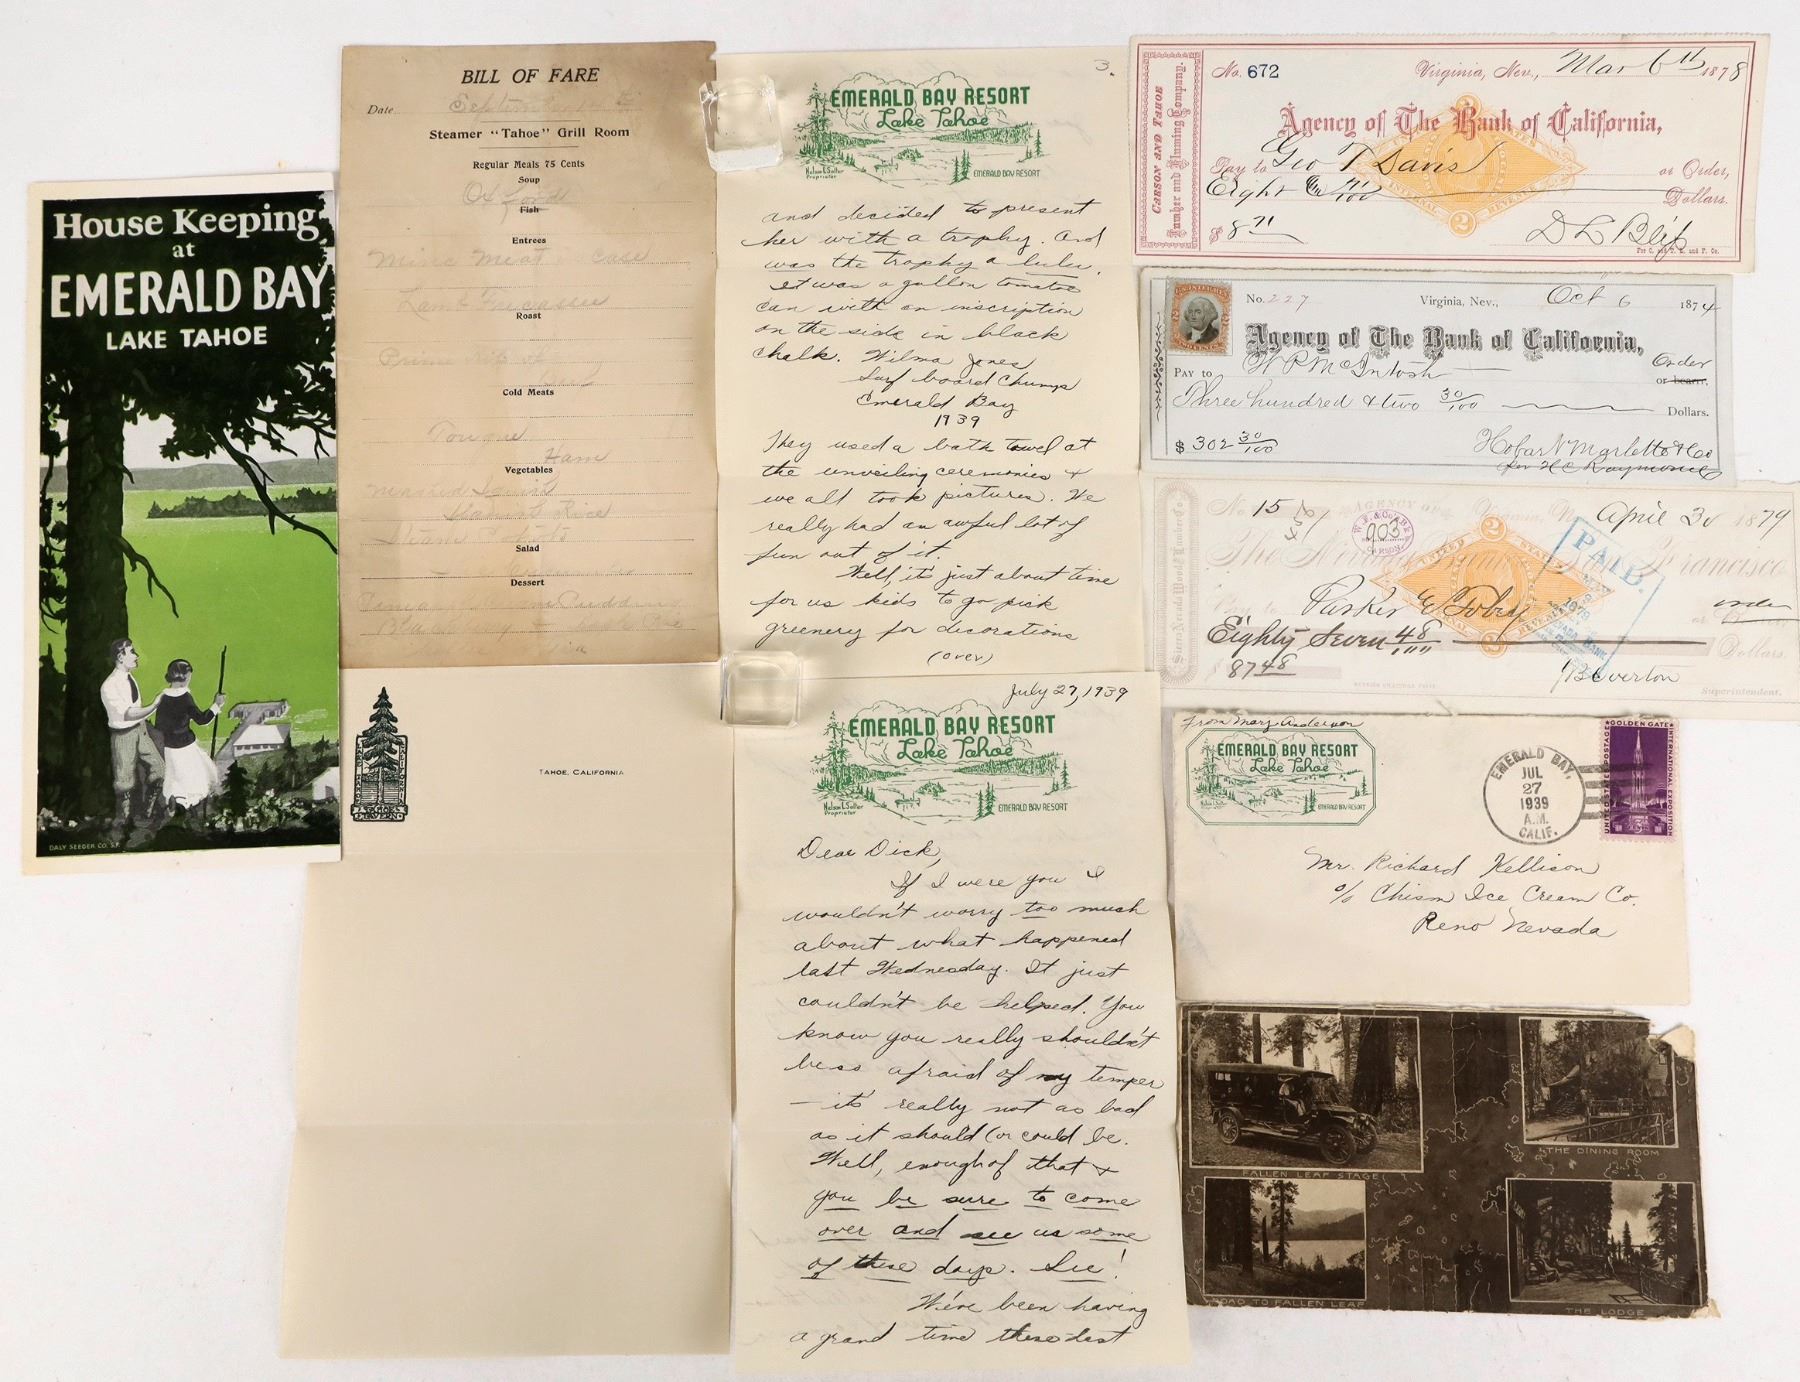 House Keeping
at
EMERALD BAY
LAKE TAHOE
DALY SEEGER CO. S.F.
BILL OF FARE
Date
Steamer "Tahoe" Grill Room
Regular Meals 75 Cents
Soup
Oxford
Fish
Entrees
Minc Meat Case
Lamb Fricassee
Roast
Prime
Cold Meats
Tongue
Ham
Vegetables
Mashed
Rice
Steam
Salad
Dessert
Pudding
TAHOE, CALIFORNIA
TAVERN
3.
EMERALD BAY RESORT
Lake Tahoe
Nelson L. Salter
Proprietor
EMERALD BAY RESORT
and decided to present
her with a trophy. And
was the trophy a lulu.
It was a gallon tomatoe
can with an inscription
on the side in black
chalk. Wilma Jones
Surf board Champs
Emerald Bay
1939
They used a bath towel at
the unveiling ceremonies &
we all took pictures. We
really had an awful lot of
fun out of it.
Well, it's just about time
for us kids to go pick
greenery for decorations
(over)
July 27, 1939
EMERALD BAY RESORT
Lake Tahoe
Nelson L. Salter
Proprietor
EMERALD BAY RESORT
Dear Dick,
If I were you I
wouldn't worry too much
about what happened
last Wednesday. It just
couldn't be helped. You
know you really shouldn't
be so afraid of my temper
– it's really not as bad
as it should (or could be.
Well, enough of that &
you be sure to come
over and see us some
of these days. See!
We've been having
a grand time these last
CARSON AND TAHOE
Lumber and Fluming Company.
No. 672
Virginia, Nev., Mar 6th 1878
Agency of The Bank of California,
Pay to Geo T Davis or Order,
Eight 71/100 Dollars.
$ 8 71
Per C. and T. L. and F. Co.
No. 227
Virginia, Nev., Oct 6 1874
Agency of The Bank of California,
Order
PAY TO W P McIntosh or bearer.
Three hundred & two 30/100 Dollars.
$ 302 30/100
Hobart Marlette & Co
Sierra Nevada Wood
No 15
AGENCY OF
April 30 1879
W. F. & Co's Bk
903
CARSON
PAID.
The Nevada Bank of San Francisco
Pay to Parker & Tobey or order
Eighty Seven 48 Dollars.
$ 87 48
Overton
Superintendent.
From Mary Anderson
EMERALD BAY RESORT
Lake Tahoe
Nelson L. Salter
Proprietor
EMERALD BAY RESORT
EMERALD BAY,
JUL
27
1939
A.M.
CALIF.
GOLDEN GATE
INTERNATIONAL EXPOSITION
UNITED STATES POSTAGE
3¢
Mr. Richard Kellison
c/o Chism Ice Cream Co.
Reno Nevada
FALLEN LEAF STAGE
THE DINING ROOM
ROAD TO FALLEN LEAF
THE LODGE